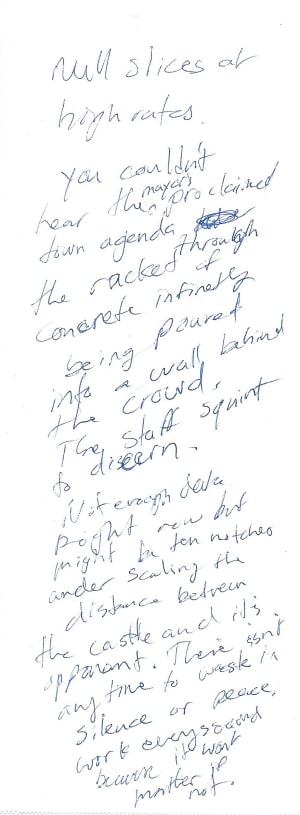 Null slices at
high rates.
You couldn't
hear the mayor's proclaimed
town agenda
through
the racket of
concrete infinetly
being poured
into a wall behind
the crowd.
The staff squint
to discern.
Not enough data
right now but
might be ten notches
under scaling the
distance between
the castle and it's
opponant. There isn't
any time to waste in
silence or peace.
work every second
because it wont
matter if
not.